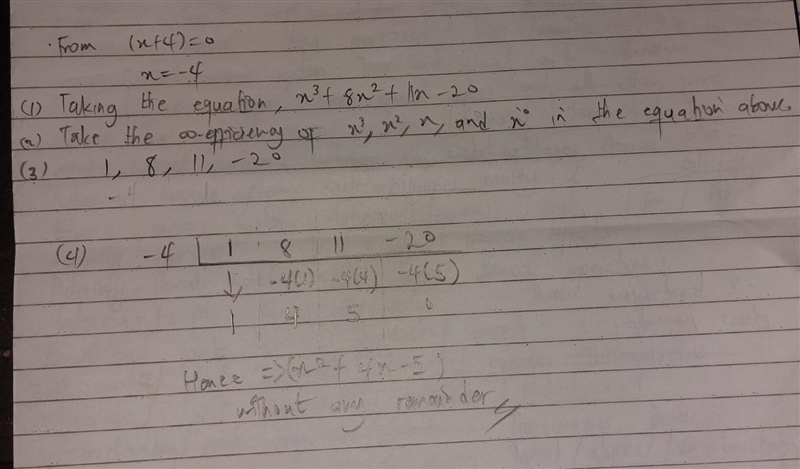 . From (x+4)=0
x=-4
(1) Taking the equation, x³+ 8x²+ 11x -20
(2) Take the co-efficiency of x³, x², x, and x⁰ in the equation above
(3) 1, 8, 11, -20
-4
(4) -4 | 1 8 11 -20
↓ -4(1) -4(4) -4(5)
1 4 5 0
Hence =>(x²+ 4x-5)
without any remainder